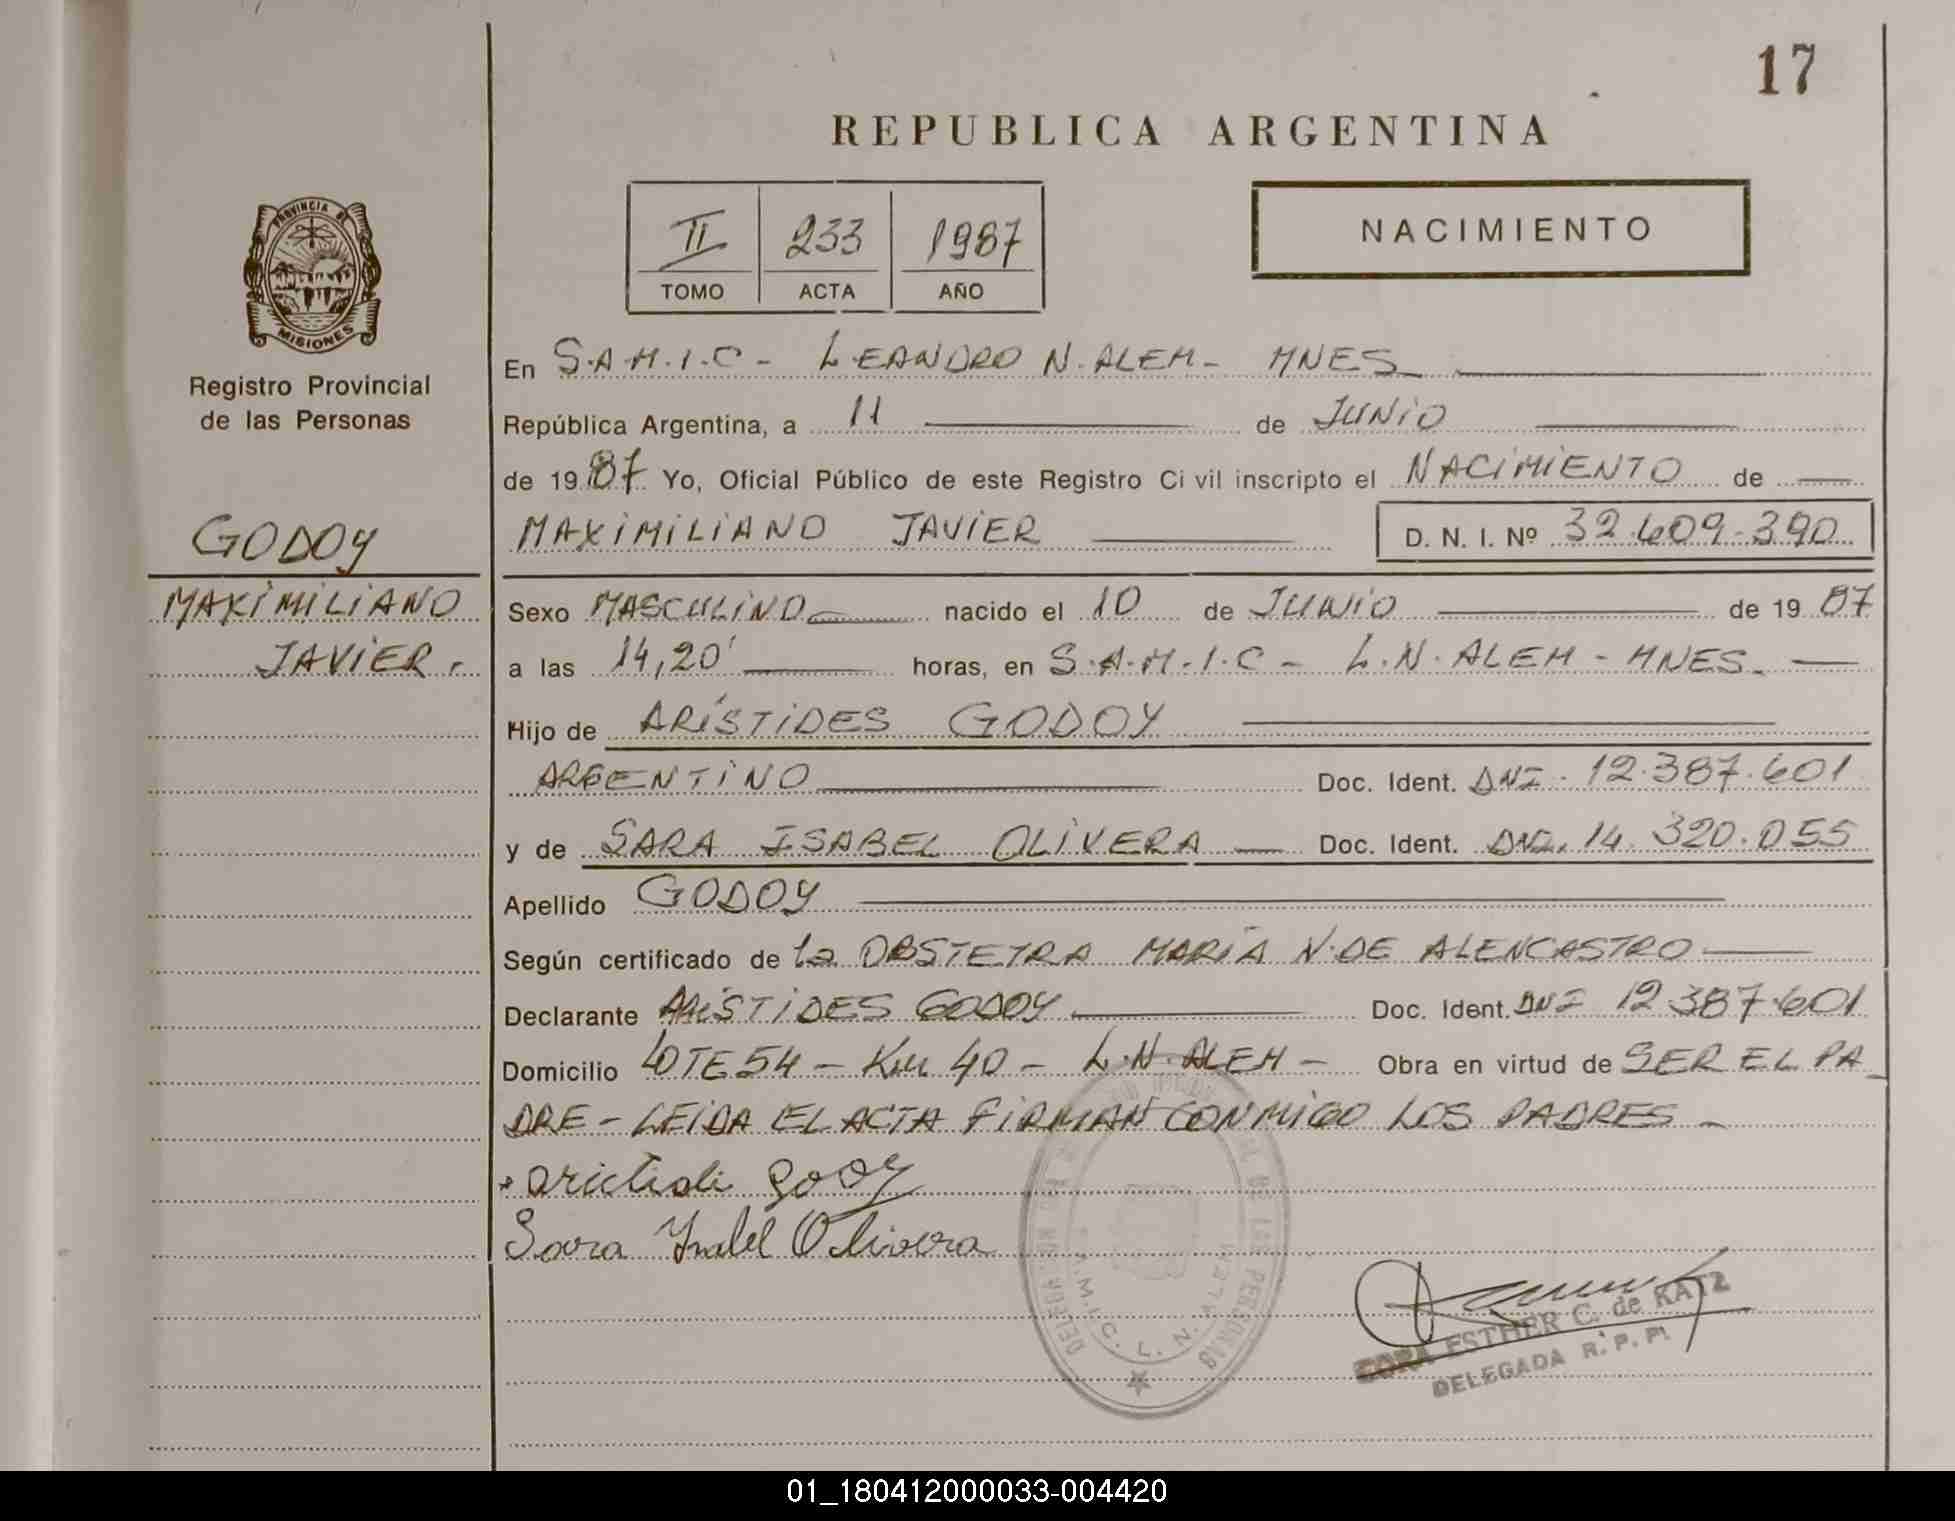 17
REPUBLICA ARGENTINA
II 233 1987
TOMO ACTA AÑO
NACIMIENTO
PROVINCIA DE
MISIONES
Registro Provincial
de las Personas
GODOY
MAXIMILIANO
JAVIER.
En S.A.M.I.C - LEANDRO N. ALEM - MNES
República Argentina, a 11 de JUNIO
de 1987 Yo, Oficial Público de este Registro Ci vil inscripto el NACIMIENTO de
MAXIMILIANO JAVIER D. N. I. Nº 32.609.390
Sexo MASCULINO nacido el 10 de JUNIO de 19 87
a las 14,20' horas, en S.A.M.I.C - L.N. ALEM - MNES.
Hijo de ARÍSTIDES GODOY
ARGENTINO Doc. Ident. DNI. 12.387.601
y de SARA ISABEL OLIVERA Doc. Ident. DNI. 14.320.055
Apellido GODOY
Según certificado de la OBSTETRA MARÍA N. DE ALENCASTRO
Declarante ARÍSTIDES GODOY Doc. Ident. DNI 12.387.601
Domicilio LOTE 54 - Km 40 - L.N. ALEM - Obra en virtud de SER EL PA_
DRE - LEIDA EL ACTA FIRMAN CONMIGO LOS PADRES -
Sara Ysabel Olivera
DE LAS PERSONAS
S.A.M.I.C. L. N. ALEM
ESTHER C. de KATZ
DELEGADA R. P. P.
01_180412000033-004420